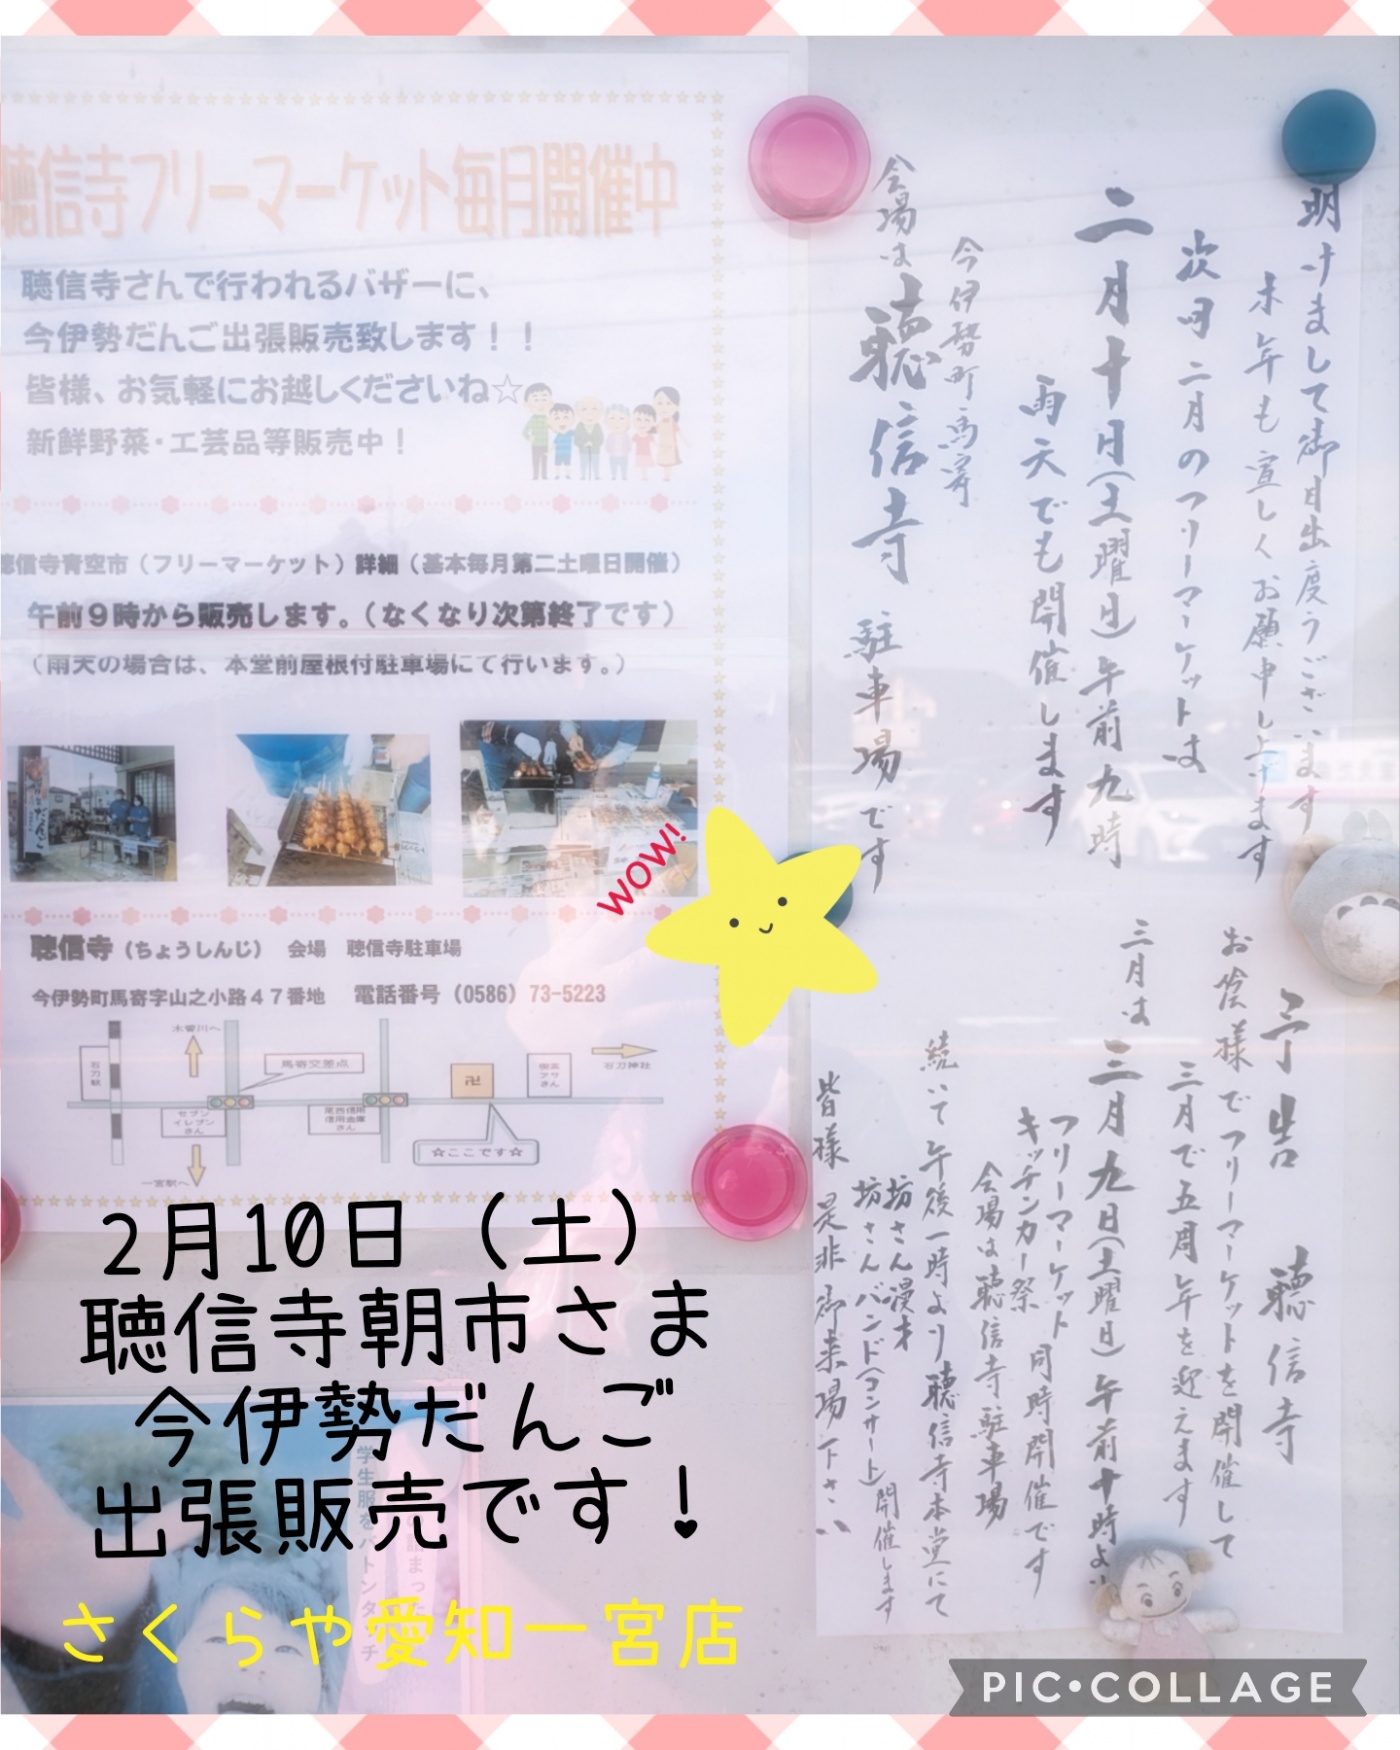 聴信寺フリーマーケット毎月開催中
聴信寺さんで行われるバザーに、
今伊勢だんご出張販売致します！！
皆様、お気軽にお越しくださいね☆
新鮮野菜・工芸品等販売中！
聴信寺青空市（フリーマーケット）詳細（基本毎月第二土曜日開催）
午前９時から販売します。（なくなり次第終了です）
（雨天の場合は、本堂前屋根付駐車場にて行います。）
聴信寺（ちょうしんじ） 会場 聴信寺駐車場
今伊勢町馬寄字山之小路４７番地 電話番号（0586）73-5223
木曽川へ
石刀駅
馬寄交差点
セブン
イレブン
さん
尾西信用
信用金庫
さん
卍
さん
石刀神社
☆ここです☆
一宮駅へ
明けまして御目出度うございます
本年も宜しくお願申し上げます
次回二月のフリーマーケットは
二月十日（土曜日）午前九時
雨天でも開催します
今伊勢町馬寄
会場は聴信寺駐車場です
予告 聴信寺
お陰様でフリーマーケットを開催して
三月で五周年を迎えます
三月は三月九日（土曜日）午前十時より
フリーマーケット
キッチンカー祭
同時開催です
会場は聴信寺駐車場
続いて午後一時より聴信寺本堂にて
坊さん漫才
坊さんバンド（コンサート）
開催します
皆様 是非御来場下さい
WOW!
2月10日（土）
聴信寺朝市さま
今伊勢だんご
出張販売です！
さくらや愛知一宮店
PIC•COLLAGE